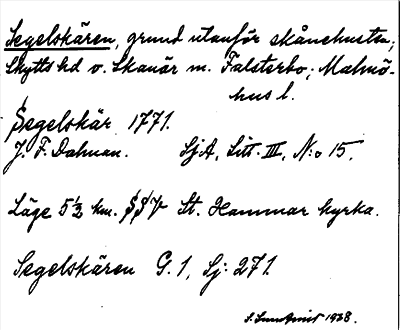 Segelskären, grund utanför skånekusten;
Skytts hd o. Skanör m. Falsterbo; Malmö-
hus l.
Segelskär 1771.
J. F. Dalman. SjA, Litt. III, N:o 15.
Läge 5½ km. SSV St. Hammar kyrka.
Segelskären G. 1, Sj: 271.
1928.